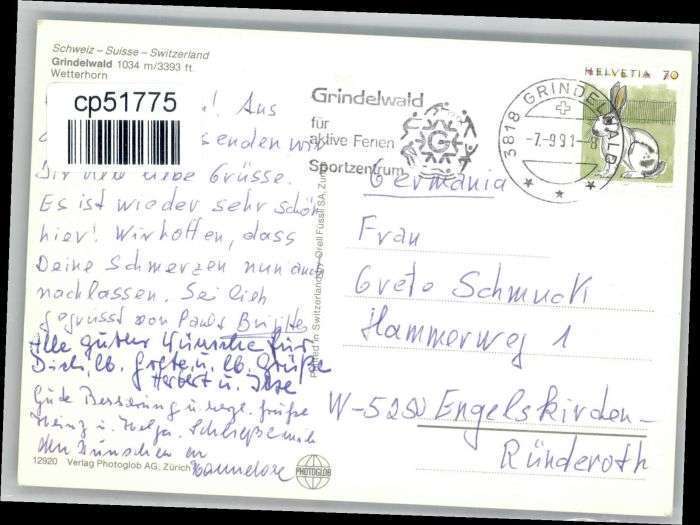 Schweiz – Suisse – Switzerland
Grindelwald 1034 m/3393 ft.
Wetterhorn
cp51775
! Aus
senden wir
Dir liebe Grüsse.
Es ist wieder sehr schön
hier! Wir hoffen, dass
Deine Schmerzen nun auch
nachlassen. Sei lieb
gegrüsst von Brigitte
Alle guten Wünsche für
Dich, lb. Grete u. lb. Grüße
Herbert u. Ilse
Gute Besserung u. Grüße
Heinz u. Helga. Schließe mich
den Wünschen an
Hannelore
12920 Verlag Photoglob AG, Zürich
PHOTOGLOB
printed in Switzerland by Orell Füssli SA, Zürich
Grindelwald
für
aktive Ferien
Sportzentrum
G
3818 GRINDELWALD
-7.-9 91.-8
HELVETIA 70
Germania
Frau
Grete Schmuck
Hammerweg 1
W-5250 Engelskirchen-
Ründeroth